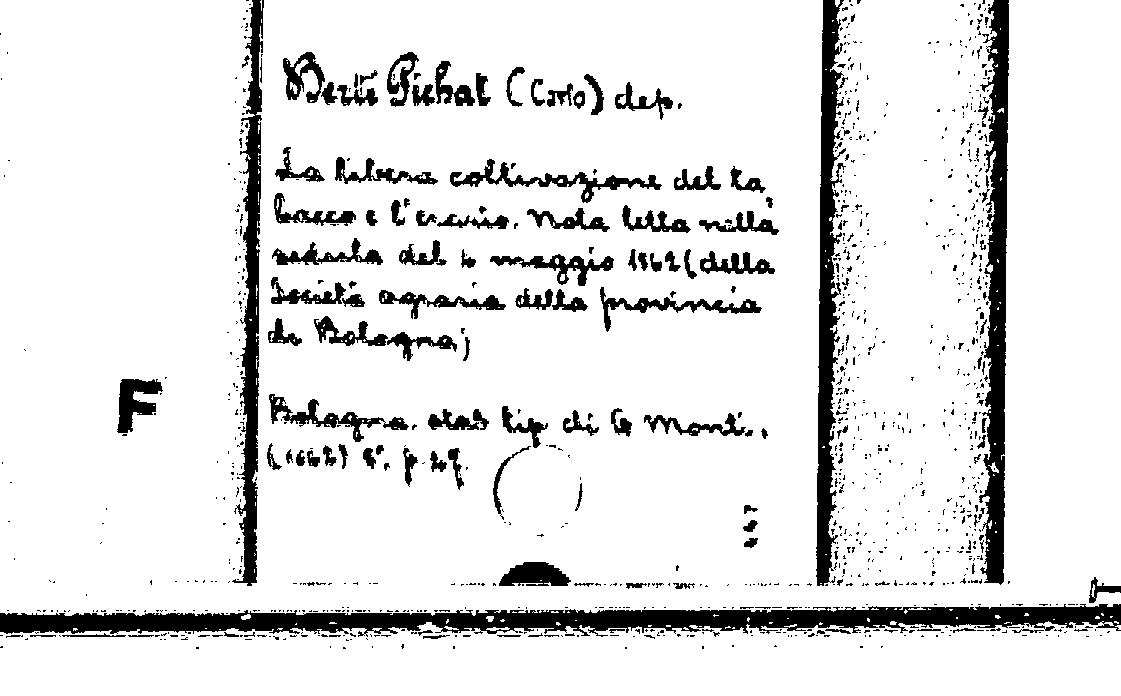 Berti Pichat (Carlo) dep.
La libera coltivazione del ta
bacco e l'erario. Nota letta nella
seduta del 4 maggio 1862 (della
Società agraria della provincia
di Bologna)
F
Bologna. stab tip di G Monti.,
(1862) 8°. p 29.